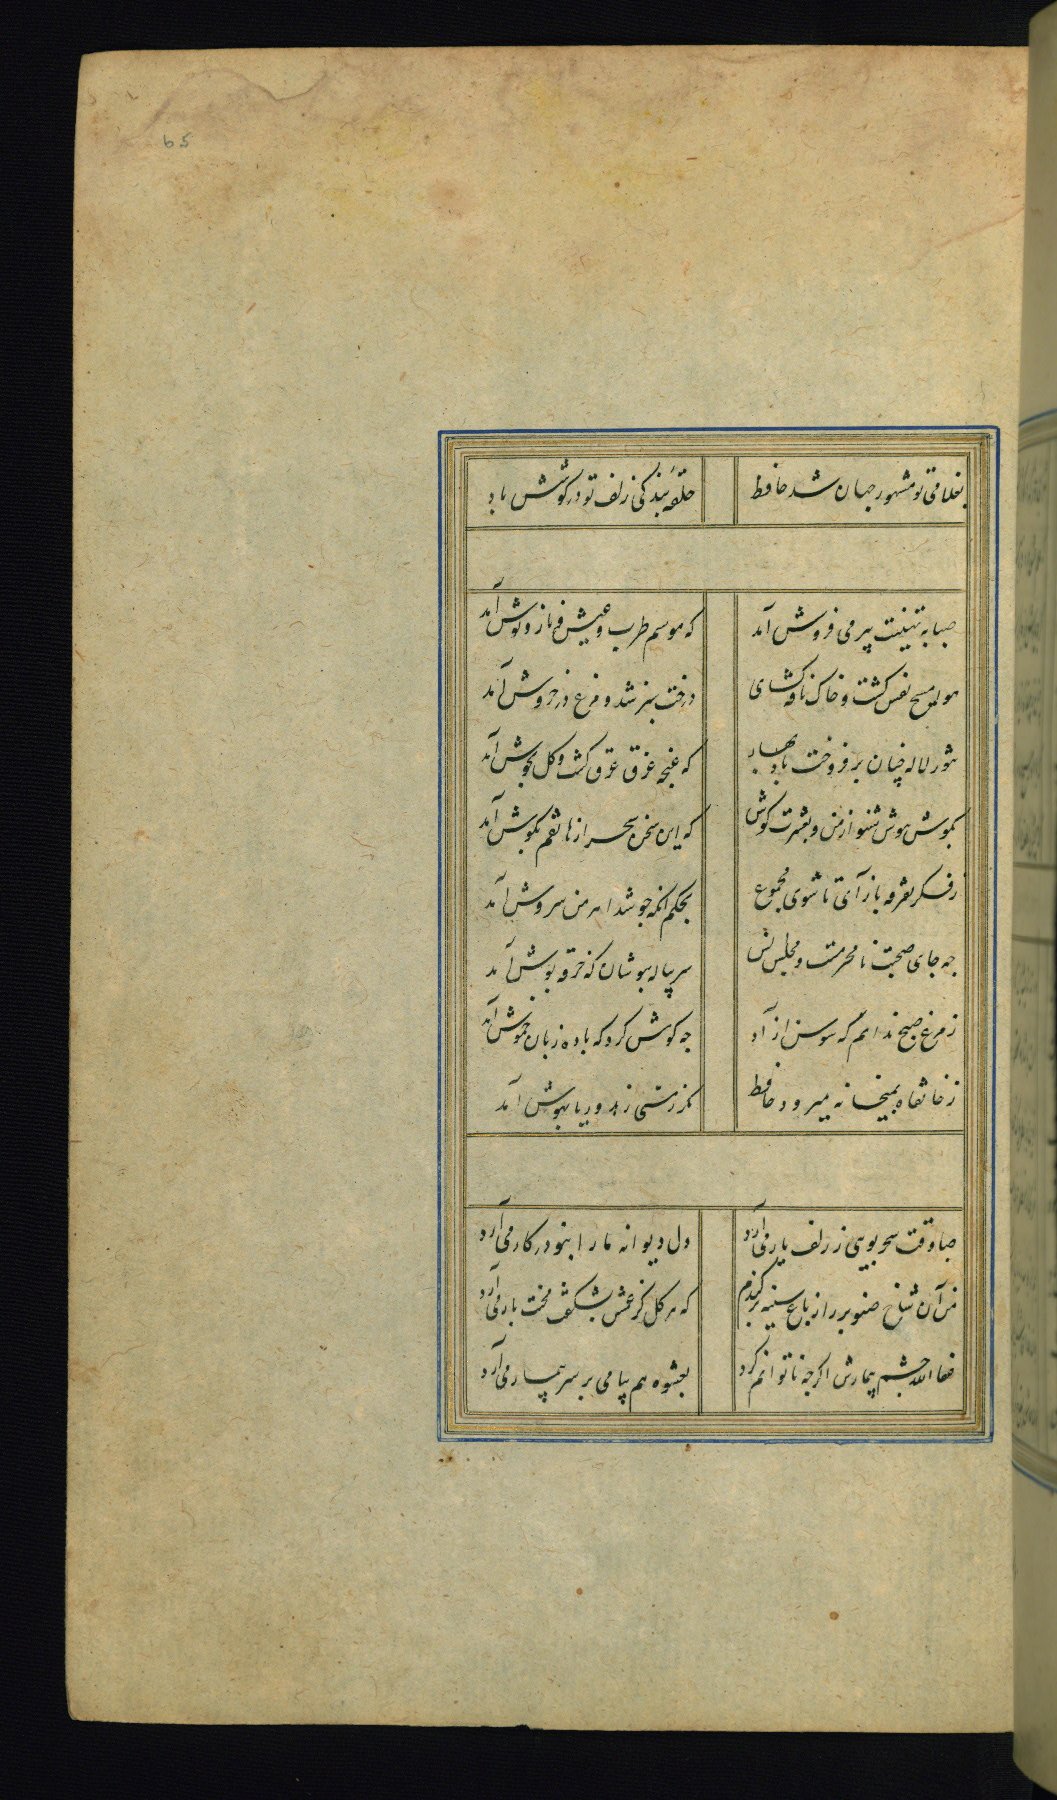 65
بغلامی تو مشهور جهان شد حافظ حلقه بندگی زلف تو در کوشش باد
صبا به تهنیت پیر می فروش آمد که موسم طرب و عیش و ناز و نوش آمد
هوا مسیح نفس کشت و خاک نافه کشای درخت سبز شد و مرغ در خروش آمد
تنور لاله چنان بر فروخت باد بهار که غنچه غرق عرق کشت و کل بجوش آمد
بکوش هوش شنو از من و بعشرت کوش که این سخن سحر از هاتفم بکوش آمد
ز فکر تفرقه باز آی تا شوی مجموع بحکم آنکه جو شد اهرمن سروش آمد
جه جای صحبت نامحرمست و مجلس انس سر پیاله بپوشان که خرقه پوش آمد
ز مرغ صبح ندانم که سوسن ازاد جه کوش کرد که با ده زبان خموش آمد
ز خانقاه بمیخانه میرود حافظ مکر ز مستی زهد و ریا بهوش آمد
صبا وقت سحر بویی ز زلف یار می آرد دل دیوانه ما را بنو در کار می آرد
من آن شاخ صنوبر را ز باغ سینه بر کندم که هر کل کز غمش بشکفت محنت بار می آرد
عفا الله چشم بیمارش اکر جه ناتوانم کرد بعشوه هم پیامی بر سر بیمار می آرد